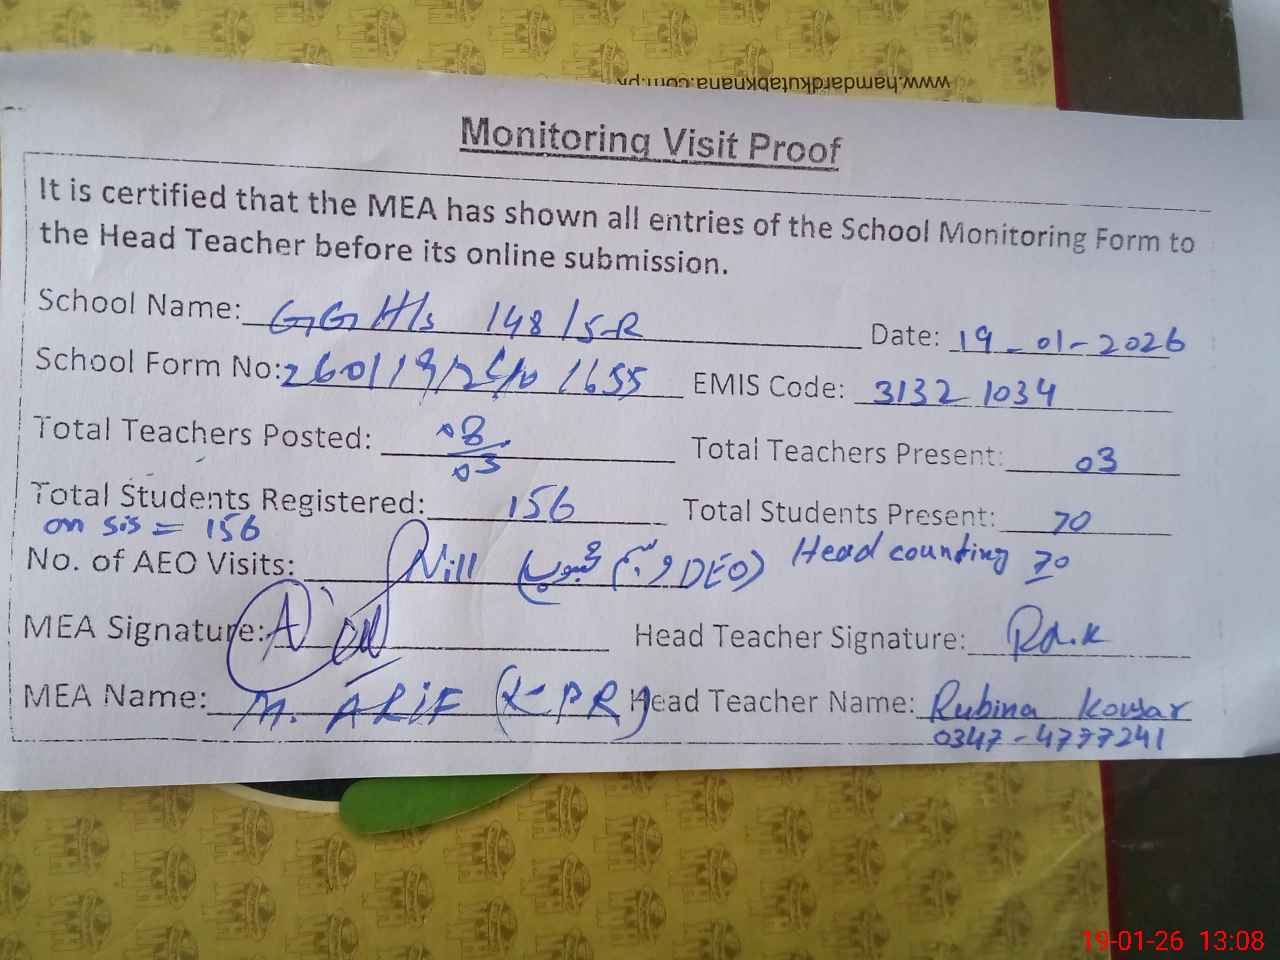 www.hamdardkutabkhana.com.pk
Monitoring Visit Proof
It is certified that the MEA has shown all entries of the School Monitoring Form to
the Head Teacher before its online submission.
School Name: GGHS 148/5-R Date: 19-01-2026
School Form No: EMIS Code: 31321034
Total Teachers Posted: 08/03 Total Teachers Present: 03
Total Students Registered: 156 Total Students Present: 70
on sis = 156 Head counting 70
No. of AEO Visits: Nill DEO)
MEA Signature: Head Teacher Signature:
MEA Name: M. ARiF (KPR) Head Teacher Name: Rubina Kousar
0347-4777241
19-01-26 13:08